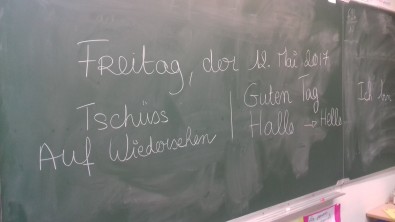 Freitag, der 12. Mai 2017
Tschüss
Auf Wiedersehen
Guten Tag
Hallo → Hello
Ich